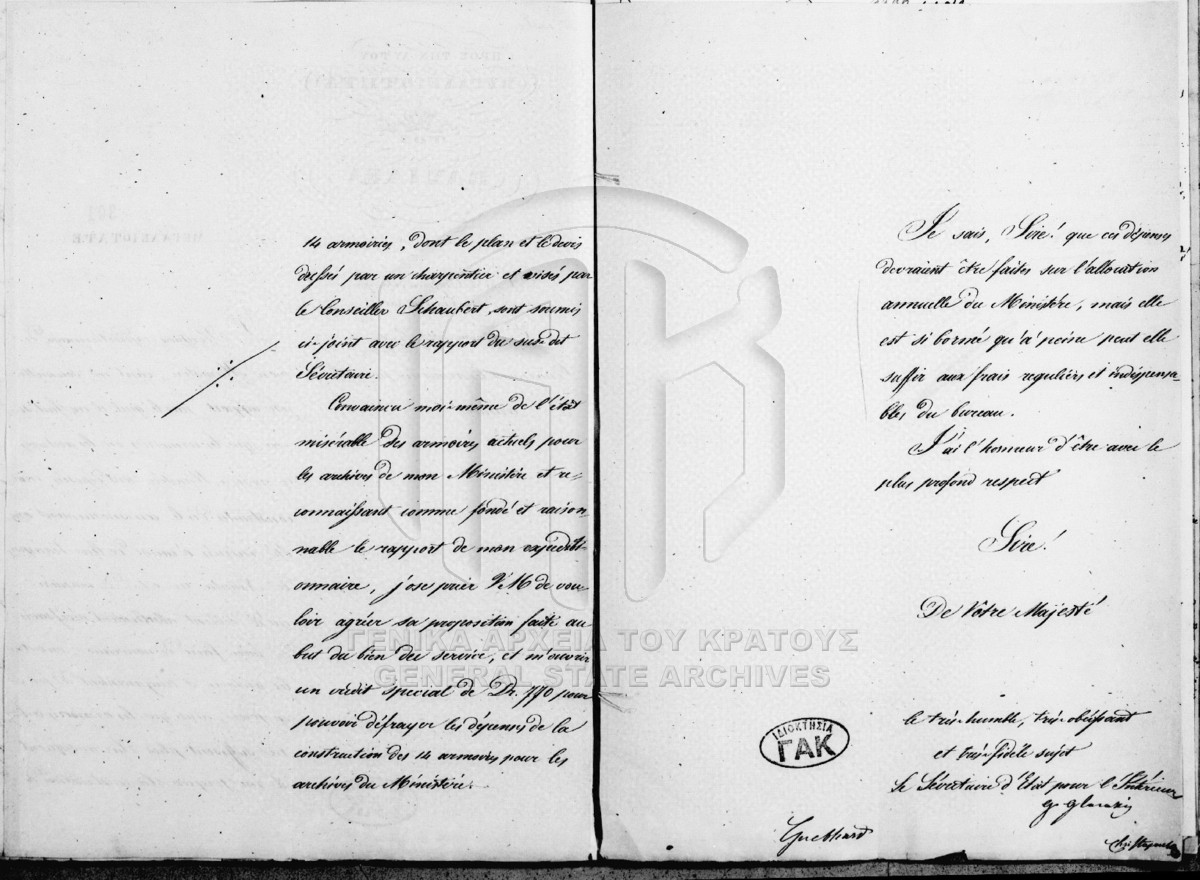 14 armoiries, dont le plan et le devis
dressé par un charpentier et visés par
le Conseiller Schaubert, sont soumis
ci-joint avec le rapport du sus dit
Sécrétaire.
Convaincu moi-même de l'état
misérable des armoires actuels pour
les archives de mon Ministère et re-
connaissant comme fondé et raison-
nable le rapport de mon expéditi-
onnaire, j'ose prier V.M. de vou-
loir agréer sa proposition faite au
but du bien du service, et m'ouvrir
un crédit special de Dr. 770 pour
pouvoir défrayer les dépenses de la
construction des 14 armoires pour les
archives du Ministère.
Je sais, Sire! que ces dépenses
devraient être faites sur l'allocation
annuelle du Ministère, mais elle
est si borné qu'à peine peut elle
suffir aux frais reguliers et indispensa-
bles du bureau.
J'ai l'honneur d'être avec le
plus profond respect
Sire!
De Vôtre Majesté
le très-humble, très-obéissant
et très-fidèle sujet
Le Sécrétaire d'Etat pour l'Intérieur
G. Glarakis
ΓΕΝΙΚΑ ΑΡΧΕΙΑ ΤΟΥ ΚΡΑΤΟΥΣ
GENERAL STATE ARCHIVES
ΙΔΙΟΚΤΗΣΙΑ
ΓΑΚ